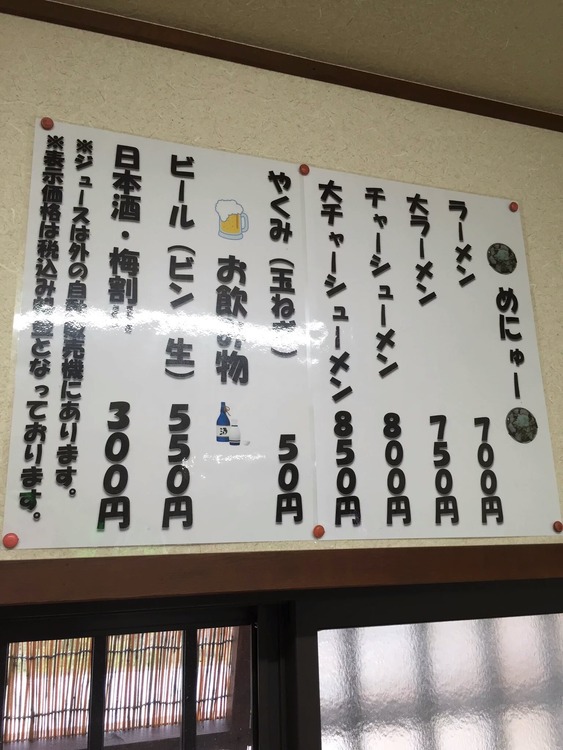 めにゅー
ラーメン 700円
大ラーメン 750円
チャーシューメン 800円
大チャーシューメン 850円
やくみ(玉ねぎ) 50円
お飲み物
酒
ビール(ビン 生) 550円
日本酒・梅割 300円
※ジュースは外の自動販売機にあります。
※表示価格は税込み となっております。